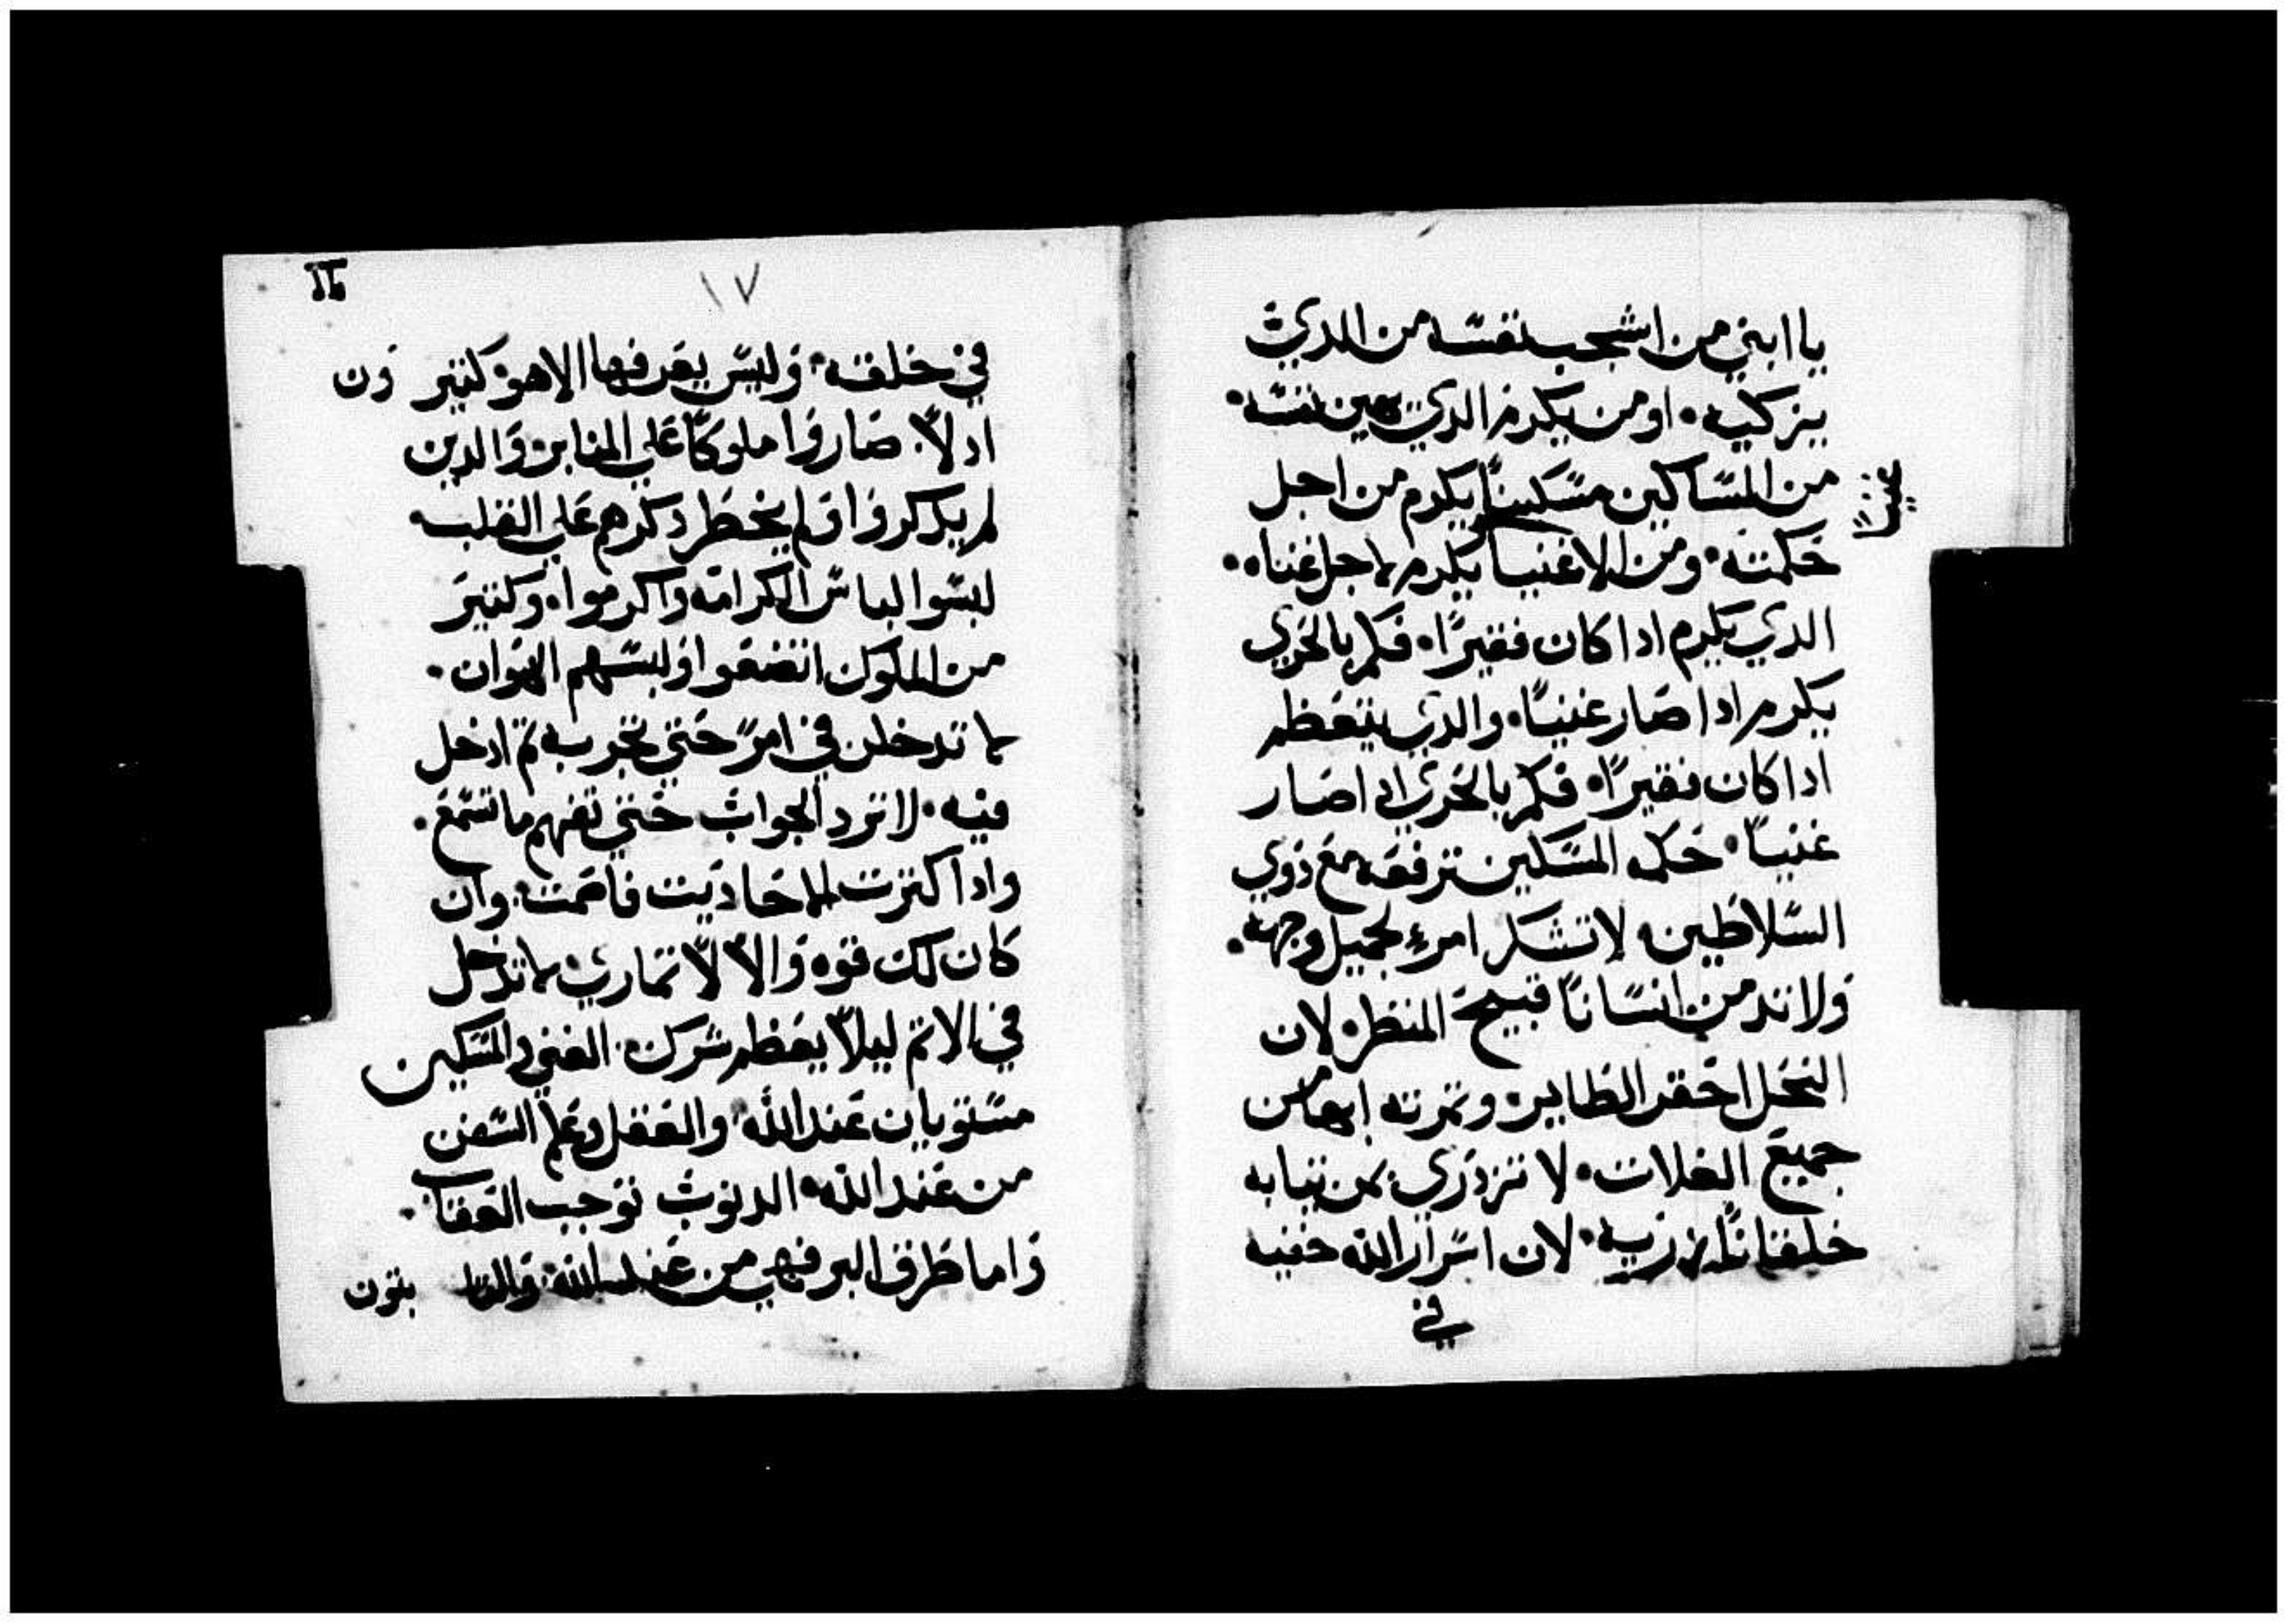 يا ابني من اشجب نفسه من الدي
يزكيه • او من يكرم الدي يهين نفسه •
من المساكين مسكينًا يكرم من اجل
حكمته • ومن الاغنيا يكرم لاجل غناه •
الدي يكرم ادا كان فقيرًا • فكم بالحري
يكرم ادا صار غنيًا • والدي يتعظم
ادا كان فقيرًا • فكم بالحري ادا صار
غنيًا • حكمه المسكين ترفعه مع ذوي
السلاطين • لا تشكر امرء لجميل وجهه •
ولا تدمن انسانًا قبيح المنظر • لان
النحل احقر الطاير • وتمرته ابها من
جميع الغلات • لا تزدري بمن تيابه
خلقانًا لان اسرار الله خفيه
في
١٧
في خلقته • وليس يعرفها الا هو • كتيرون
ادلاً • صاروا ملوكًا علي المنابر • والدين
لم يدكروا ولم يخطر دكرهم علي القلب •
لبسوا لباس الكرامه واكرموا • وكتير
من الملوك اتضعوا ولبسهم الهوان •
لا تدخلن في امرً حتي تجربه تم ادخل
فيه • لا ترد الجواب حتي تفهم ما تسمع •
وادا كترت الاحاديت فاصمت • وان
كان لك قوه والا لا تماري • لا تدخل
في الاتم ليلا يعظم شرك • الغني والمسكين
مستويان عند الله • والعقل وعلم السنن
من عند الله • الدنوب توجب العقاب •
واما طرق البر فهي من عند الله •